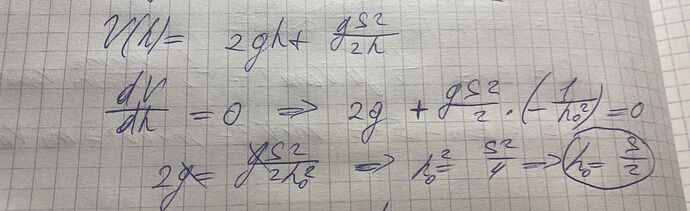 V(h) = 2gh + gS²/2h
dV/dh = 0 ⇒ 2g + gS²/2 · (−1/h₀²) = 0
2g = gS²/2h₀² ⇒ h₀² = S²/4 ⇒ h₀ = S/2